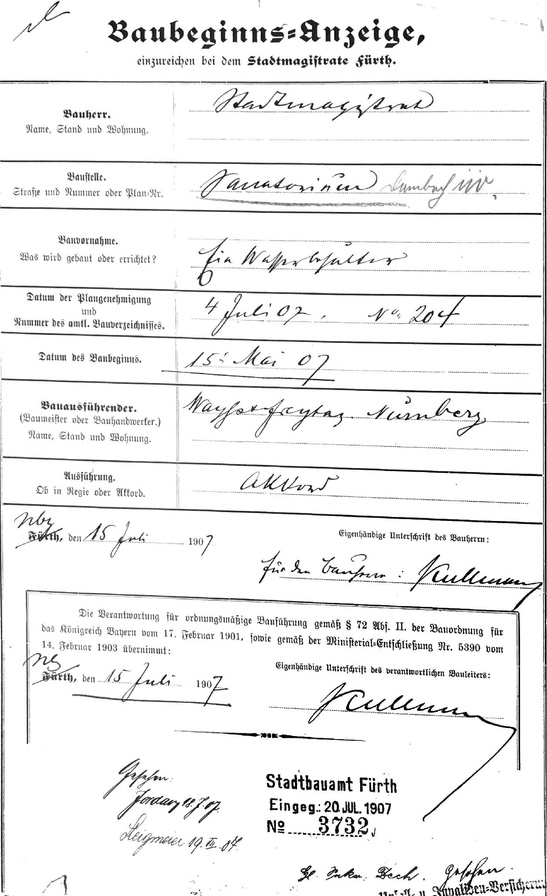 Baubeginns-Anzeige,
einzureichen bei dem Stadtmagistrate Fürth.
Bauherr. Stadtmagistrat
Name, Stand und Wohnung.
Baustelle.
Straße und Nummer oder Plan-Nr. Sanatorium Dambach
Bauvornahme.
Was wird gebaut oder errichtet? Ein Wasserbehälter
Datum der Plangenehmigung
und 4 Juli 07. No. 204
Nummer des amtl. Bauverzeichnisses.
Datum des Baubeginns. 15. Mai 07
Bauausführender. Wayss & Freytag Nürnberg
(Baumeister oder Bauhandwerker.)
Name, Stand und Wohnung.
Ausführung. Akkord
Ob in Regie oder Akkord.
Nbg
Fürth, den 15 Juli 1907
Eigenhändige Unterschrift des Bauherrn:
für den Bauherrn: Kullmann
Die Verantwortung für ordnungsmäßige Bauführung gemäß § 72 Abs. II. der Bauordnung für
das Königreich Bayern vom 17. Februar 1901, sowie gemäß der Ministerial-Entschließung Nr. 5390 vom
14. Februar 1903 übernimmt:
Fürth, den 15 Juli 1907
Eigenhändige Unterschrift des verantwortlichen Bauleiters:
Kullmann
Gesehen:
18.7.07.
Stadtbauamt Fürth
Eingeg.: 20. JUL. 1907
No 3732
Gesehen